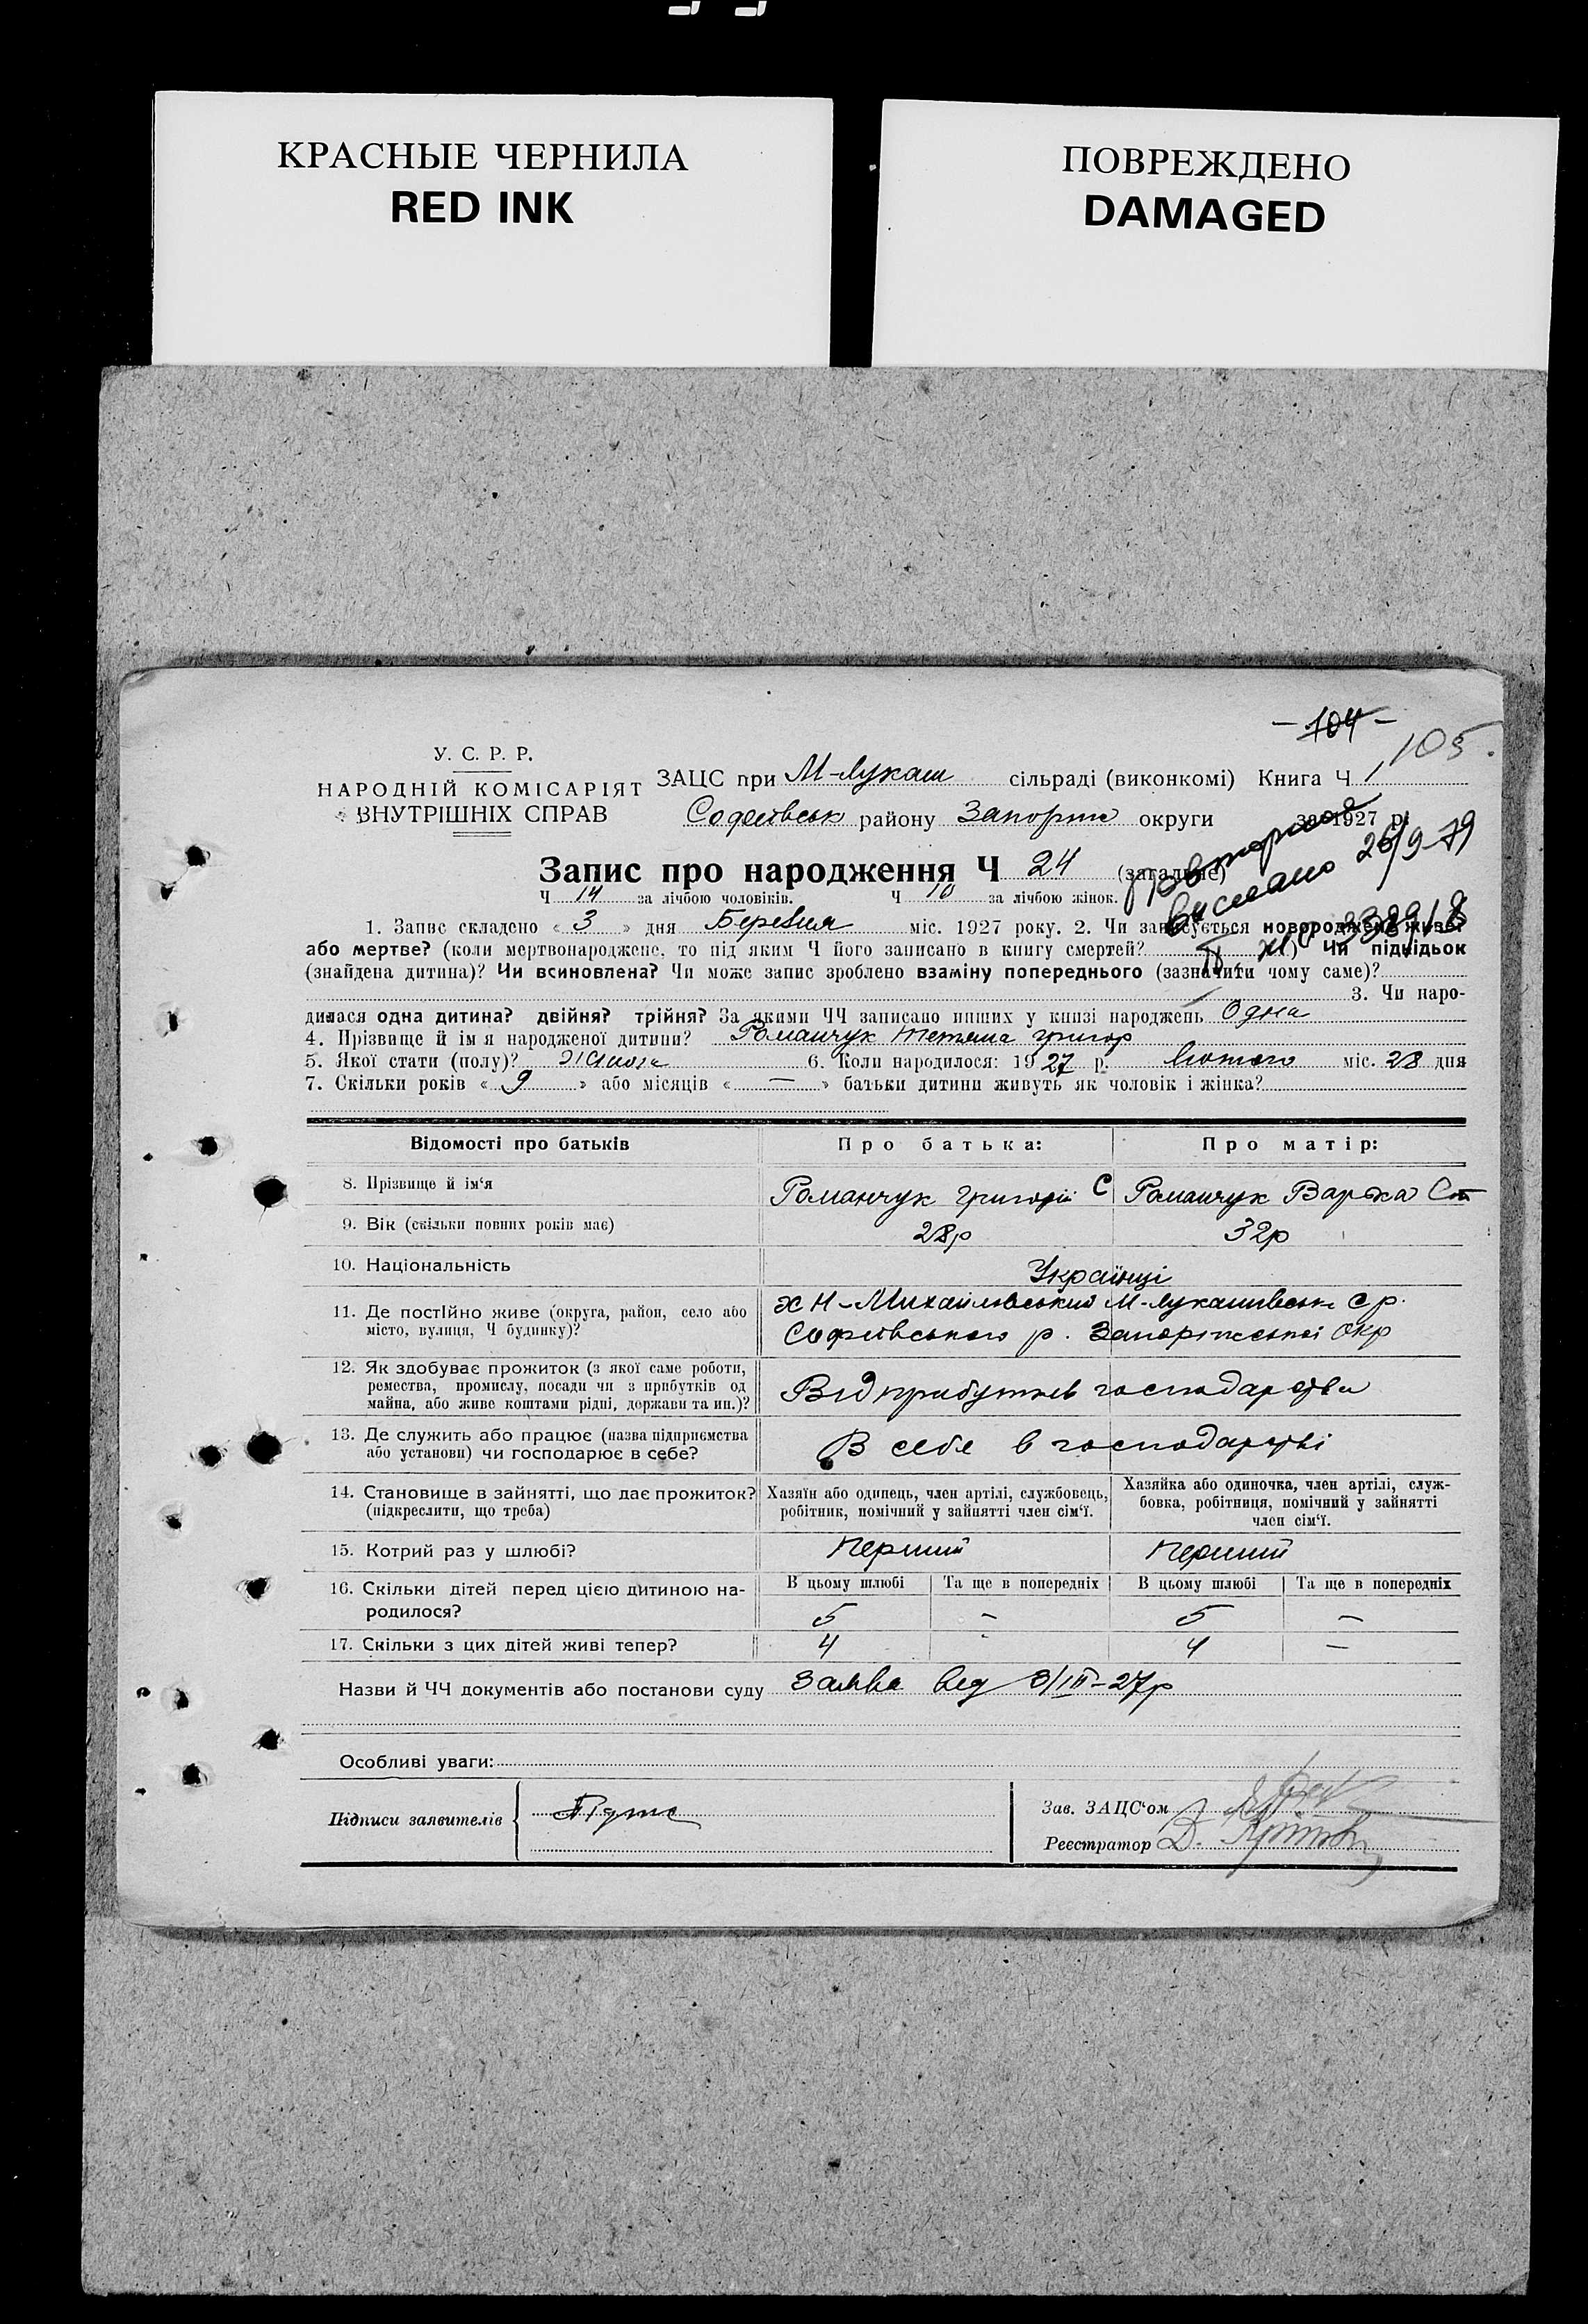 КРАСНЫЕ ЧЕРНИЛА
RED INK
ПОВРЕЖДЕНО
DAMAGED
- 104 -
105.
У. С. Р. Р.
НАРОДНІЙ КОМІСАРІЯТ
ВНУТРІШНІХ СПРАВ
ЗАЦС при М-Лукаш сільраді (виконкомі) Книга Ч 1
Софеївськ району Запоріж округи за 1927 р.
Повторное
выслано 26/9-79
Запис про народження Ч 24 (загальне)
Ч 14 за лічбою чоловіків. Ч 10 за лічбою жінок.
1. Запис складено « 3 » дня Березня міс. 1927 року. 2. Чи записується новороджене живе?
або мертве? (коли мертвонароджене, то під яким Ч його записано в книгу смертей? ) Чи підкідьок
(знайдена дитина)? Чи всиновлена? Чи може запис зроблено взаміну попереднього (зазначити чому саме)?
3. Чи наро-
дилася одна дитина? двійня? трійня? За якими ЧЧ записано инших у книзі народжень Одна
4. Прізвище й ім я народженої дитини? Романчук Тетяна Григор
5. Якої стати (полу)? Жіноча 6. Коли народилося: 1927 р. Лютого міс. 28 дня
7. Скільки років « 9 » або місяців « — » батьки дитини живуть як чоловік і жінка?
Відомості про батьків Про батька: Про матір:
8. Прізвище й ім‘я Романчук Григорій С Романчук Варька Ст
9. Вік (скільки повних років має) 28р 32р
10. Національність Українці
11. Де постійно живе (округа, район, село або
місто, вулиця, Ч будинку)?
х Н-Михайловський М-Лукашивськ с р.
Софеївського р. Запоріжської окр
12. Як здобуває прожиток (з якої саме роботи,
ремества, промислу, посади чи з прибутків од
майна, або живе коштами рідні, держави та ин.)?
Від прибутків господарства
13. Де служить або працює (назва підприємства
або установи) чи господарює в себе?
В себе в господарстві
14. Становище в зайнятті, що дає прожиток?
(підкреслити, що треба)
Хазяїн або одинець, член артілі, службовець,
робітник, помічний у зайнятті член сім‘ї.
Хазяйка або одиночка, член артілі, служ-
бовка, робітниця, помічний у зайнятті
член сім‘ї.
15. Котрий раз у шлюбі? Перший Перший
16. Скільки дітей перед цією дитиною на-
родилося?
В цьому шлюбі Та ще в попередніх В цьому шлюбі Та ще в попередніх
5 — 5 —
17. Скільки з цих дітей живі тепер? 4 - 4 —
Назви й ЧЧ документів або постанови суду Заява від 3/III-27р
Особливі уваги:
Підписи заявителів
Зав. ЗАЦС‘ом
Реєстратор